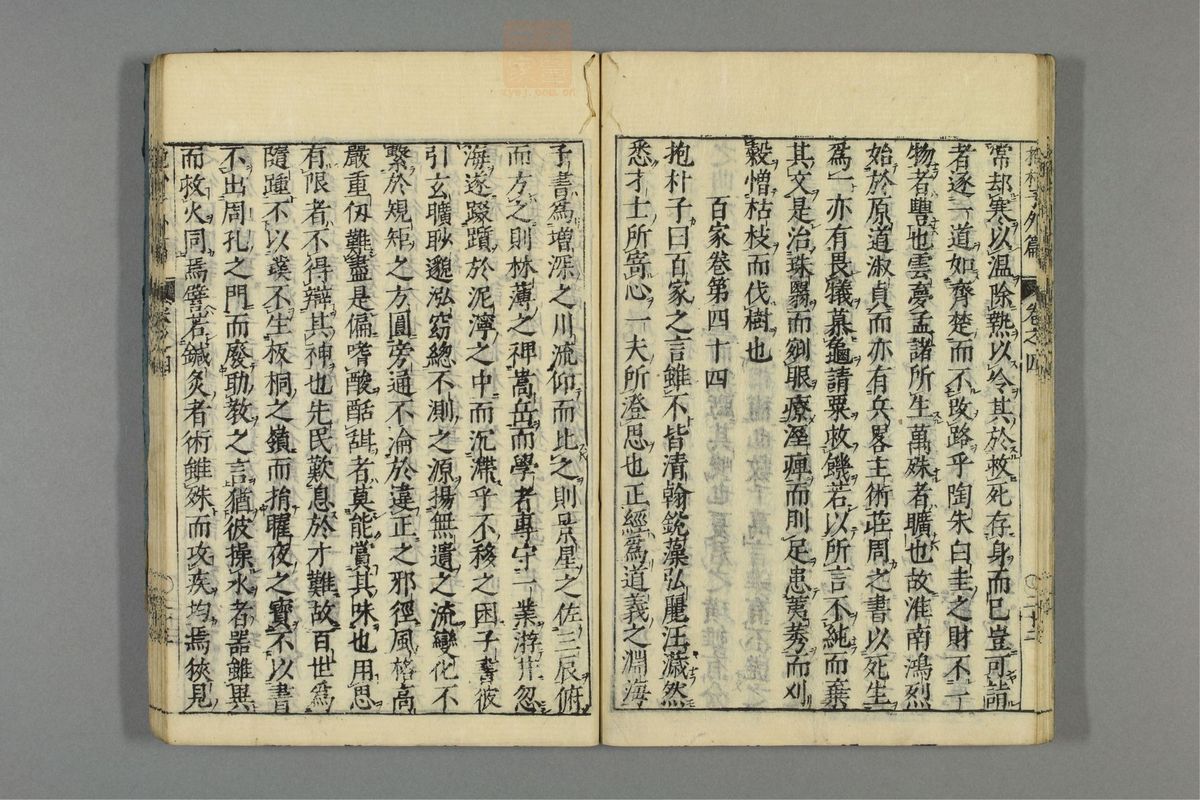 常却寒以温除𤍠以冷其於救死存身而已豈可詣
者逐一道如齊楚而不改路乎陶朱白圭之財不一
物者豊也雲夢孟諸所生萬殊者曠也故淮南鴻烈
始於原道淑貞而亦有兵畧主術莊周之書以死生
爲一亦有畏犠慕龜請粟救饑若以所言不純而棄
其文是治珠翳而剜眼療溼痺而刖足患荑莠而刈
穀憎枯枝而伐樹也
百家卷第四十四
抱朴子曰百家之言雖不皆清翰鋭藻弘麗汪濊然
悉才士所寄心一夫所澄思也正經爲道義之淵海
子書爲増深之川流仰而比之則景星之佐三辰俯
而方之則林薄之裨嵩岳而學者專守一業游井忽
海遂踸踔於泥濘之中而沉滯乎不移之困子書彼
引玄曠眇邈泓窈總不測之源揚無遺之流變化不
繫於規矩之方圓旁通不淪於違正之邪徑風格高
嚴重仭難盡是偏嗜酸甛者莫能賞其味也用思
有限者不得辯其神也先民歎息於才難故百世爲
隨踵不以璞不生板桐之嶺而捐曜夜之寳不以書
不出周孔之門而廢助教之言猶彼操水者器雖異
而救火同焉譬若鍼灸者術雖殊而攻疾均焉狹見
抱朴子外篇
卷之四